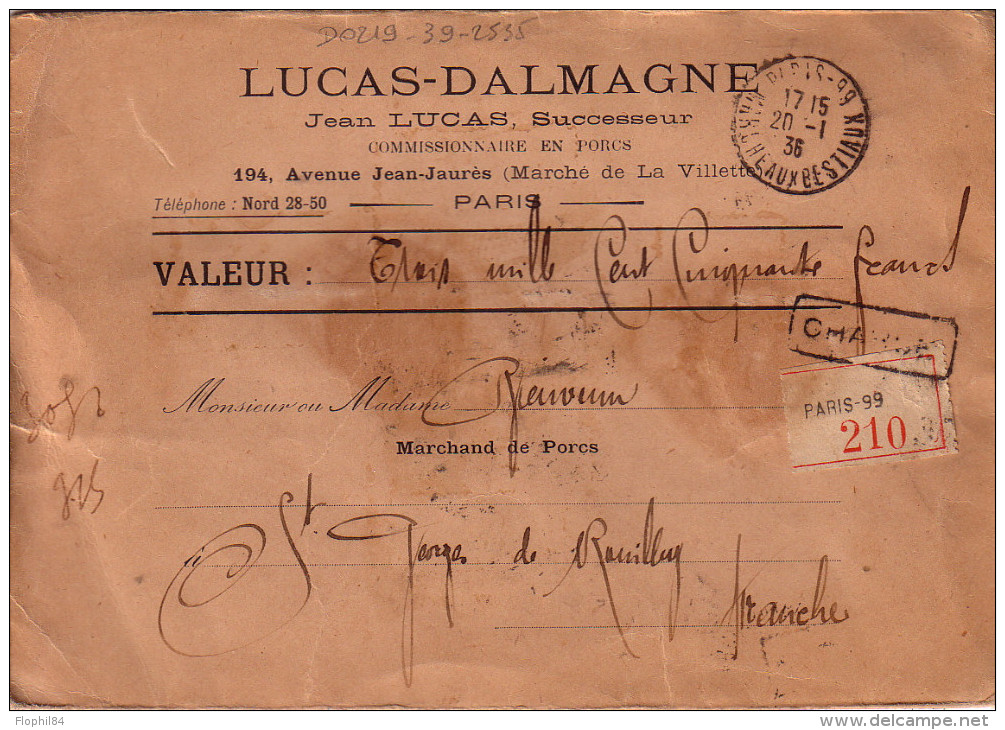 D0219-39-2535
LUCAS-DALMAGNE
Jean LUCAS, Successeur
COMMISSIONNAIRE EN PORCS
194, Avenue Jean-Jaurès (Marché de La Villette
Téléphone : Nord 28-50
PARIS
PARIS-99
17 15
20 -1
36
MARCHEAUXBESTIAUX
VALEUR : Trois mille Cent Cinquante francs
CHARGÉ
Monsieur ou Madame
PARIS-99
210
Marchand de Porcs
315
St Georges de Rouilley
Manche
Flophil84
www.delcampe.net